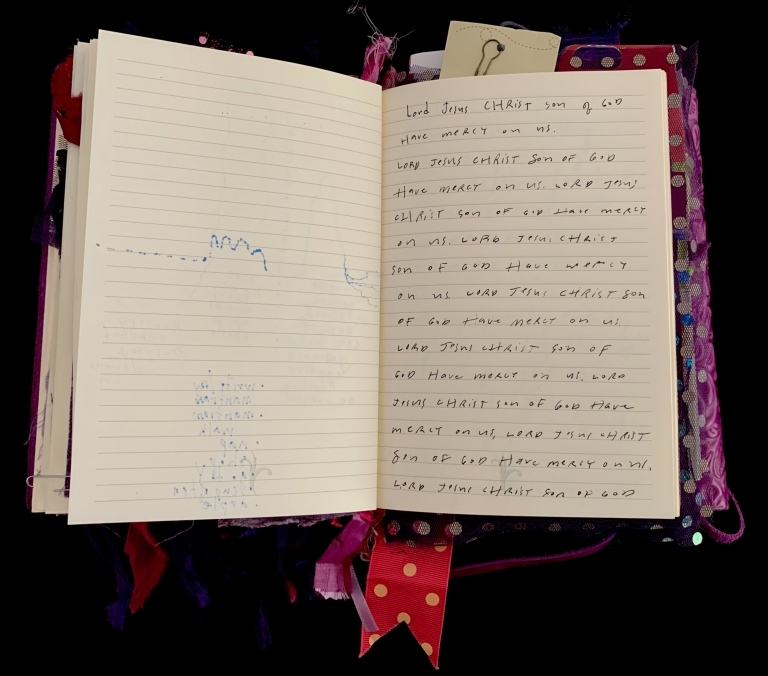 Lord Jesus CHRIST son of GOD
Have mercy on us.
LORD JESUS CHRIST Son OF GOD
Have mercy on us. LORD Jesus
CHRIST son OF GOD Have mercy
on us. LORD Jesus CHRIST
son OF GOD Have mercy
on us LORD Jesus CHRIST Son
OF GOD Have mercy on us.
LORD Jesus CHRIST son OF
GOD Have mercy on us. LORD
Jesus CHRIST son OF GOD Have
mercy on us, LORD Jesus CHRIST
Son OF GOD Have mercy on us.
LORD Jesus CHRIST son OF GOD